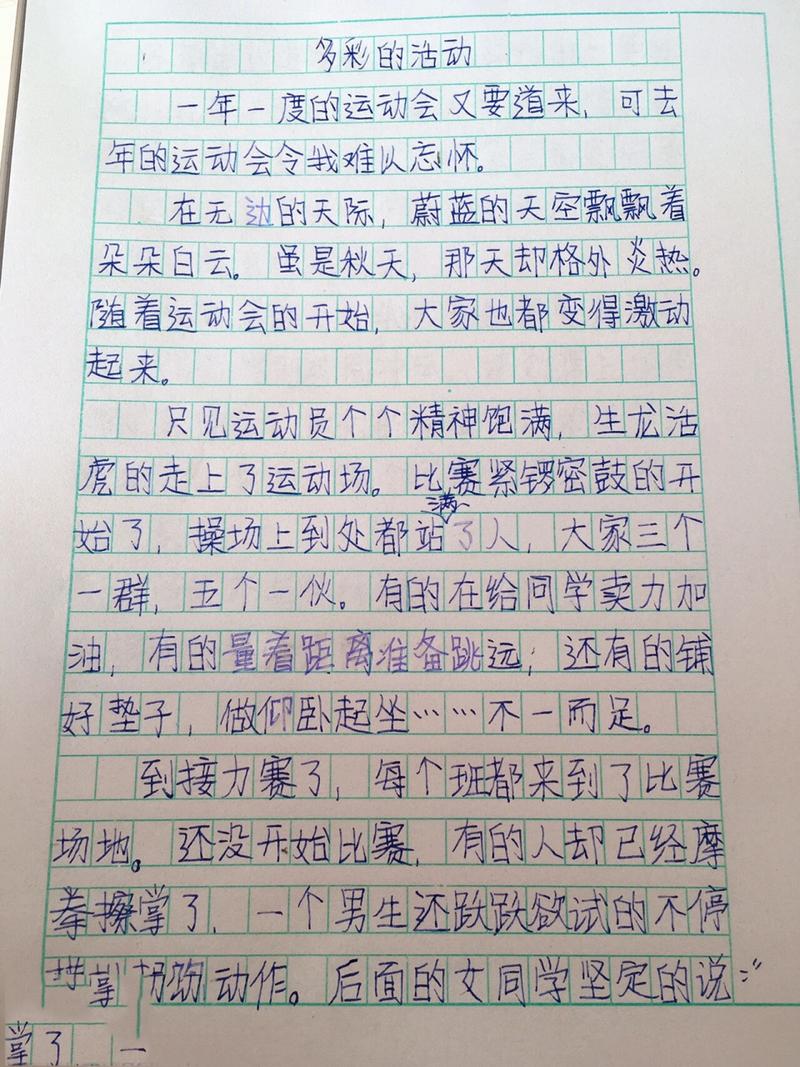 多彩的活动
一年一度的运动会又要道来，可去
年的运动会令我难以忘怀。
在无边的天际，蔚蓝的天空飘飘着
朵朵白云。虽是秋天，那天却格外炎热。
随着运动会的开始，大家也都变得激动
起来。
只见运动员个个精神饱满，生龙活
虎的走上了运动场。比赛紧锣密鼓的开
始了，操场上到处都站满了人，大家三个
一群，五个一伙。有的在给同学卖力加
油，有的量着距离准备跳远；还有的铺
好垫子，做仰卧起坐……不一而足。
到接力赛了，每个班都来到了比赛
场地。还没开始比赛，有的人却已经摩
拳擦掌了，一个男生还跃跃欲试的不停
动作。后面的女同学坚定的说：“
掌了 一